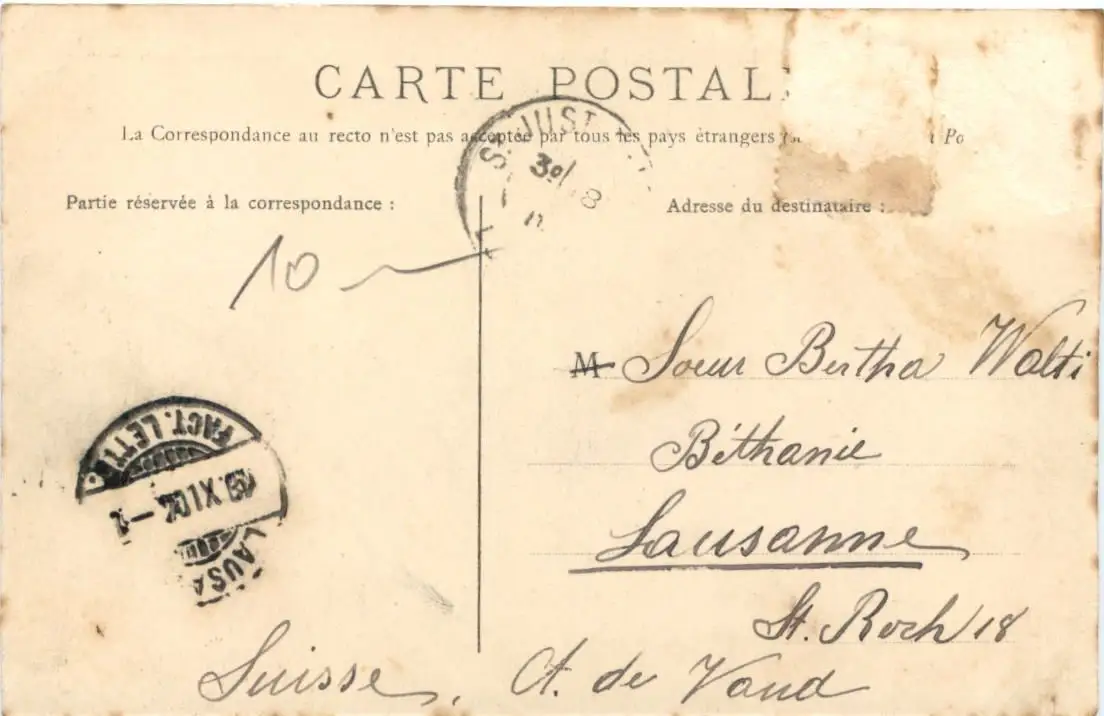 CARTE POSTAL
La Correspondance au recto n'est pas acceptée par tous les pays étrangers
Partie réservée à la correspondance :
Adresse du destinataire :
St JUST
30
8
10
M Soeur Bertha Walti
Béthanie
Lausanne
St. Roch 18
Suisse, Ct. de Vaud
FACT. LETT
XI
LAUSA